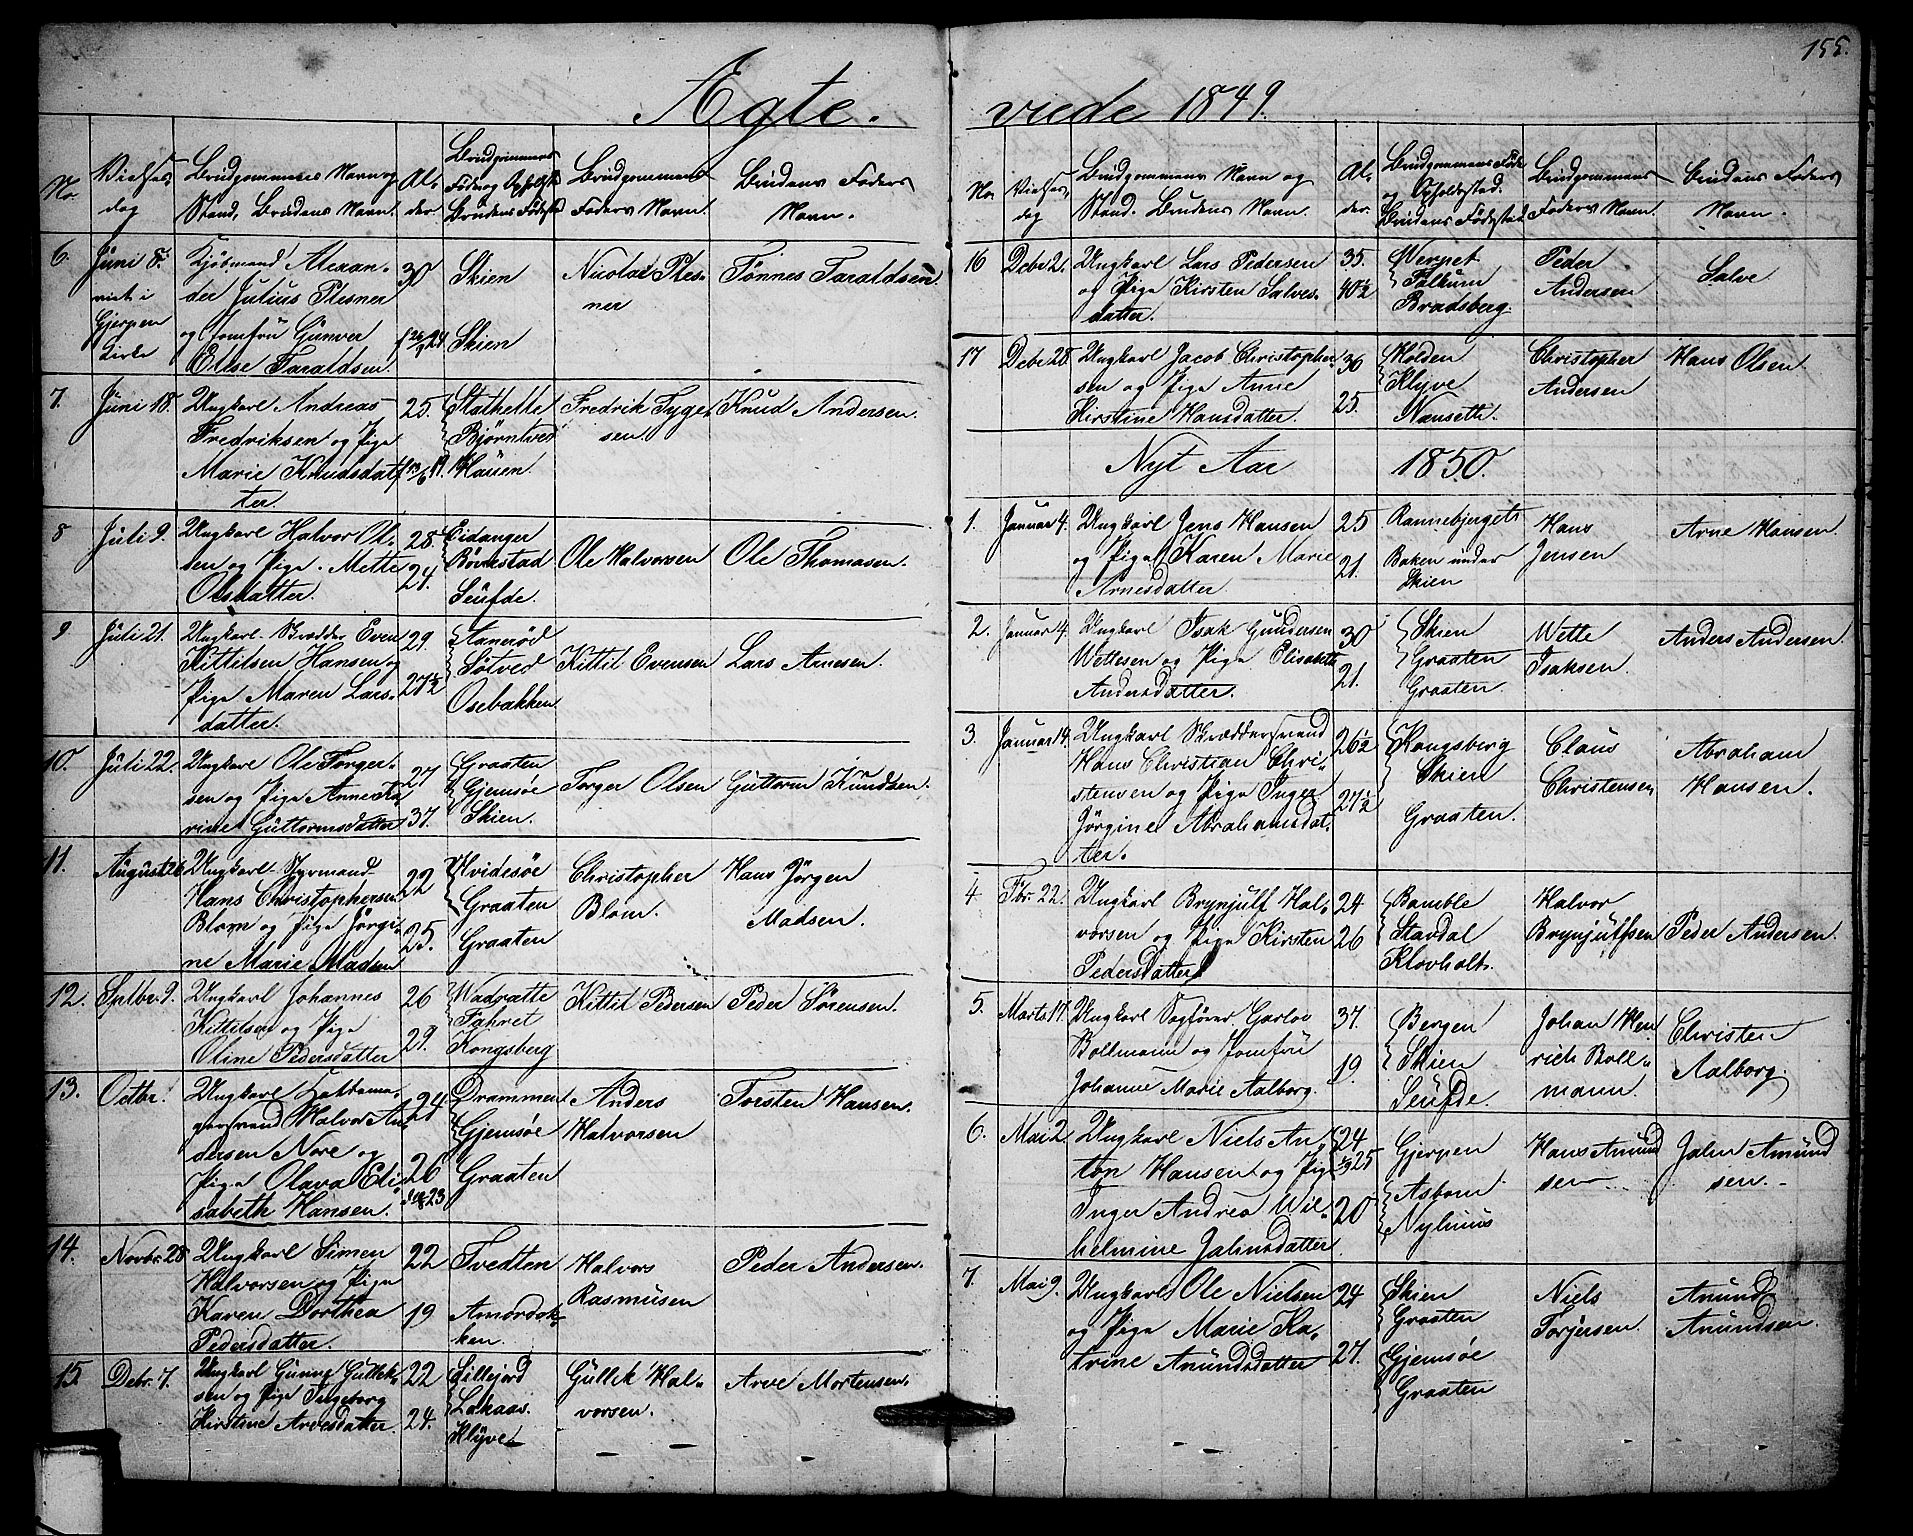 155.
Ægte.
viede 1849.
No.
Vielses
dag
Brudgommens Navn og
Stand, Brudens Navn.
Al-
der.
Brudgommens
Føde og Opholdsst
Brudens Fødested
Brudgommens
Faders Navn.
Brudens Faders
Navn.
6.
Juni 8.
viet i
Gjerpen
Kirke
Kjøbmand Alexan-
der Julius Plesner
og Jomfru Gunver
Else Taraldsen
30
24.
Skien
Skien
Nicolai Ples-
ner
Tønnes Taraldsen.
7.
Juni 18.
Ungkarl Andreas
Fredriksen og Pige
Marie Knudsdat-
ter.
25.
19.
Stathelle
Bjørntved
Hauen.
Fredrik Tyge-
sen.
Knud Andersen.
8
Juli 9.
Ungkarl Halvor Ol-
sen og Pige. Mette
Olsdatter.
28.
24.
Eidanger
Børkstad
Seufde.
Ole Halvorsen
Ole Thomasen.
9
Juli 21.
Ungkarl. Skrædder Even
Kittilsen Hansen og
Pige Maren Lars-
datter.
29.
27½
Aanerød
Søtved
Osebakken
Kittil Evensen
Lars Arnesen.
10.
Juli 22.
Ungkarl Ole Torger-
sen og Pige Anne Ka-
rine Guttormsdatter
27
37.
Graaten
Gjemsøe
Skien.
Torger Olsen
Guttorm Knudsen.
11.
August 26
Ungkarl. Styrmand
Hans Christophersen
Blom og Pige Jørgi-
ne Marie Madsen
22
25.
Hvidesøe
Graaten
Graaten
Christopher
Blom.
Hans Jørgen
Madsen.
12.
Septbr. 9.
Ungkarl Johannes
Kittilsen og Pige
Oline Pedersdatter
26
29.
Wadrette
Fahret
Kongsberg
Kittil Pedersen
Peder Sørensen.
13.
Octbr.
Ungkarl
Halvor An-
dersen Nore og
Pige Olava Eli-
sabeth Hansen.
24
26
23
Drammen
Gjemsøe
Graaten
Anders
Halvorsen
Torsten Hansen.
14.
Novbr. 28
Ungkarl Simen
Halvorsen og Pige
Karen Dorthea
Pedersdatter.
22
19
Tvedten
Amordok-
ken.
Halvors
Rasmusen
Peder Andersen.
15.
Debr. 7.
Ungkarl Gunuf Gullek-
sen og Pige Ingeborg
Kirstine Arvesdatter.
22
24.
Lillejord
Lakaas.
Klyve
Gullik Hal-
vorsen.
Arve Mortensen.
No.
Vielses-
dag
Brudgommens Navn og
Stand. Brudens Navn.
Al-
der.
Brudgommens Føde
og Opholdsstad.
Brudens Fødestad
Brudgommens
Faders Navn.
Brudens Faders
Navn.
16
Debr 2.
Ungkarl Lars Pedersen
og Pige Kirsten Salves-
datter.
35.
40½
Werpet
Falkum
Bradsberg
Peder
Andersen
Salve
17
Debr 28.
Ungkarl Jacob Christopher-
sen og Pige Anne
Kirstine Hansdatter.
30
25.
Holden
Klyve
Nenseth.
Christopher
Andersen
Hans Olsen.
Nyt Aar
1850.
1.
Januar 4.
Ungkarl Jens Hansen
og Pige Karen Marie
Arnesdatter
25
21.
Rannebjergets
Baken under
Skien
Hans
Jensen
Arne Hansen.
2.
Januar 4.
Ungkarl Isak Gundersen
Wettesen og Pige Elisabeth
Andersdatter.
30
21.
Skien
Graaten
Graaten.
Wette
Isaksen.
Anders Andersen.
3.
Januar 14.
Ungkarl Skræddersvend
Hans Christian Chri-
stensen og Pige Inger
Jørgine Abrahamsdat-
ter.
26½
27½
Kongsberg
Skien
Graaten.
Claus
Christensen
Abraham
Hansen.
4
Fbr. 22.
Ungkarl Brynjulf Hal-
vorsen og Pige Kirsten
Pedersdatter
24
26
Bamble
Stavdal
Klovholt.
Halvor
Brynjulfsen
Peder Andersen
5.
Marts 17.
Ungkarl Sagfører Garlov
Bollmann og Jomfru
Johanne Marie Aalborg.
37.
19.
Bergen
Skien
Seufde.
Johan Hen-
rich Boll-
mann.
Christen
Aalborg.
6.
Mai 2.
Ungkarl Niels An-
ton Hansen og Pige
Inger Andrea Wil-
helmine Jahnsdatter
24
25
20
Gjerpen
Nyhuus
Hans Amund
sen
Jahn Amund
sen.
7.
Mai 9.
Ungkarl Ole Nielsen
og Pige Marie Ka-
trine Anundsdatter
24
27.
Skien
Graaten
Gjemsøe
Graaten
Niels
Torjersen.
Anund
Anundsen.